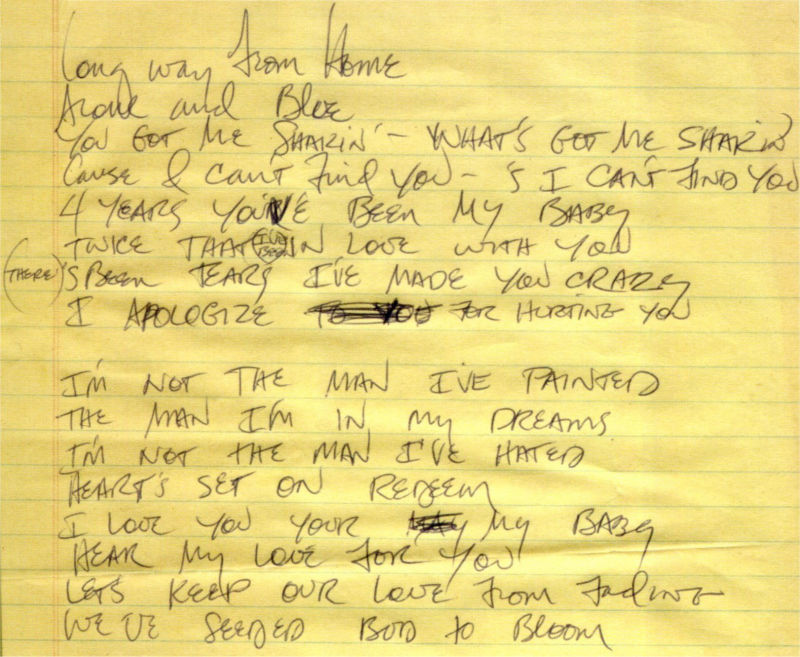 Long way from Home
Alone and Blue
You GOT ME SHAKIN' - WHAT'S GOT ME SHAKIN'
Cause I can't find YOU - 'S I CAN'T FIND YOU
4 YEARS YOU'VE BEEN MY BABY
TWICE THAT I'VE BEEN IN LOVE WITH YOU
(THERE)'S BEEN TEARS I'VE MADE YOU CRAZY
I APOLOGIZE TO YOU FOR HURTING YOU
I'M NOT THE MAN I'VE PAINTED
THE MAN I'M IN MY DREAMS
I'M NOT THE MAN I'VE HATED
HEART'S SET ON REDEEM
I LOVE YOU YOUR MY BABY
HEAR MY LOVE FOR YOU
LETS KEEP OUR LOVE from fading
WE'VE SEEDED BUD to BLOOM